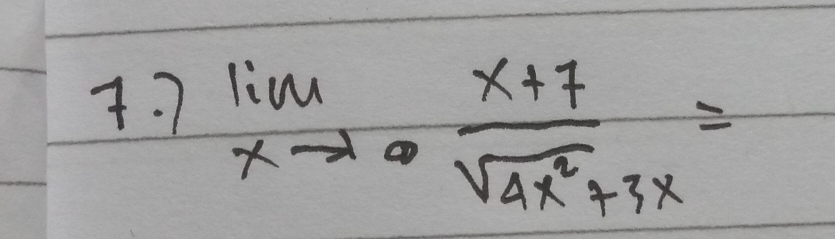 7.) lim x→∞ (x+7)/(√(4x²)+3x) =